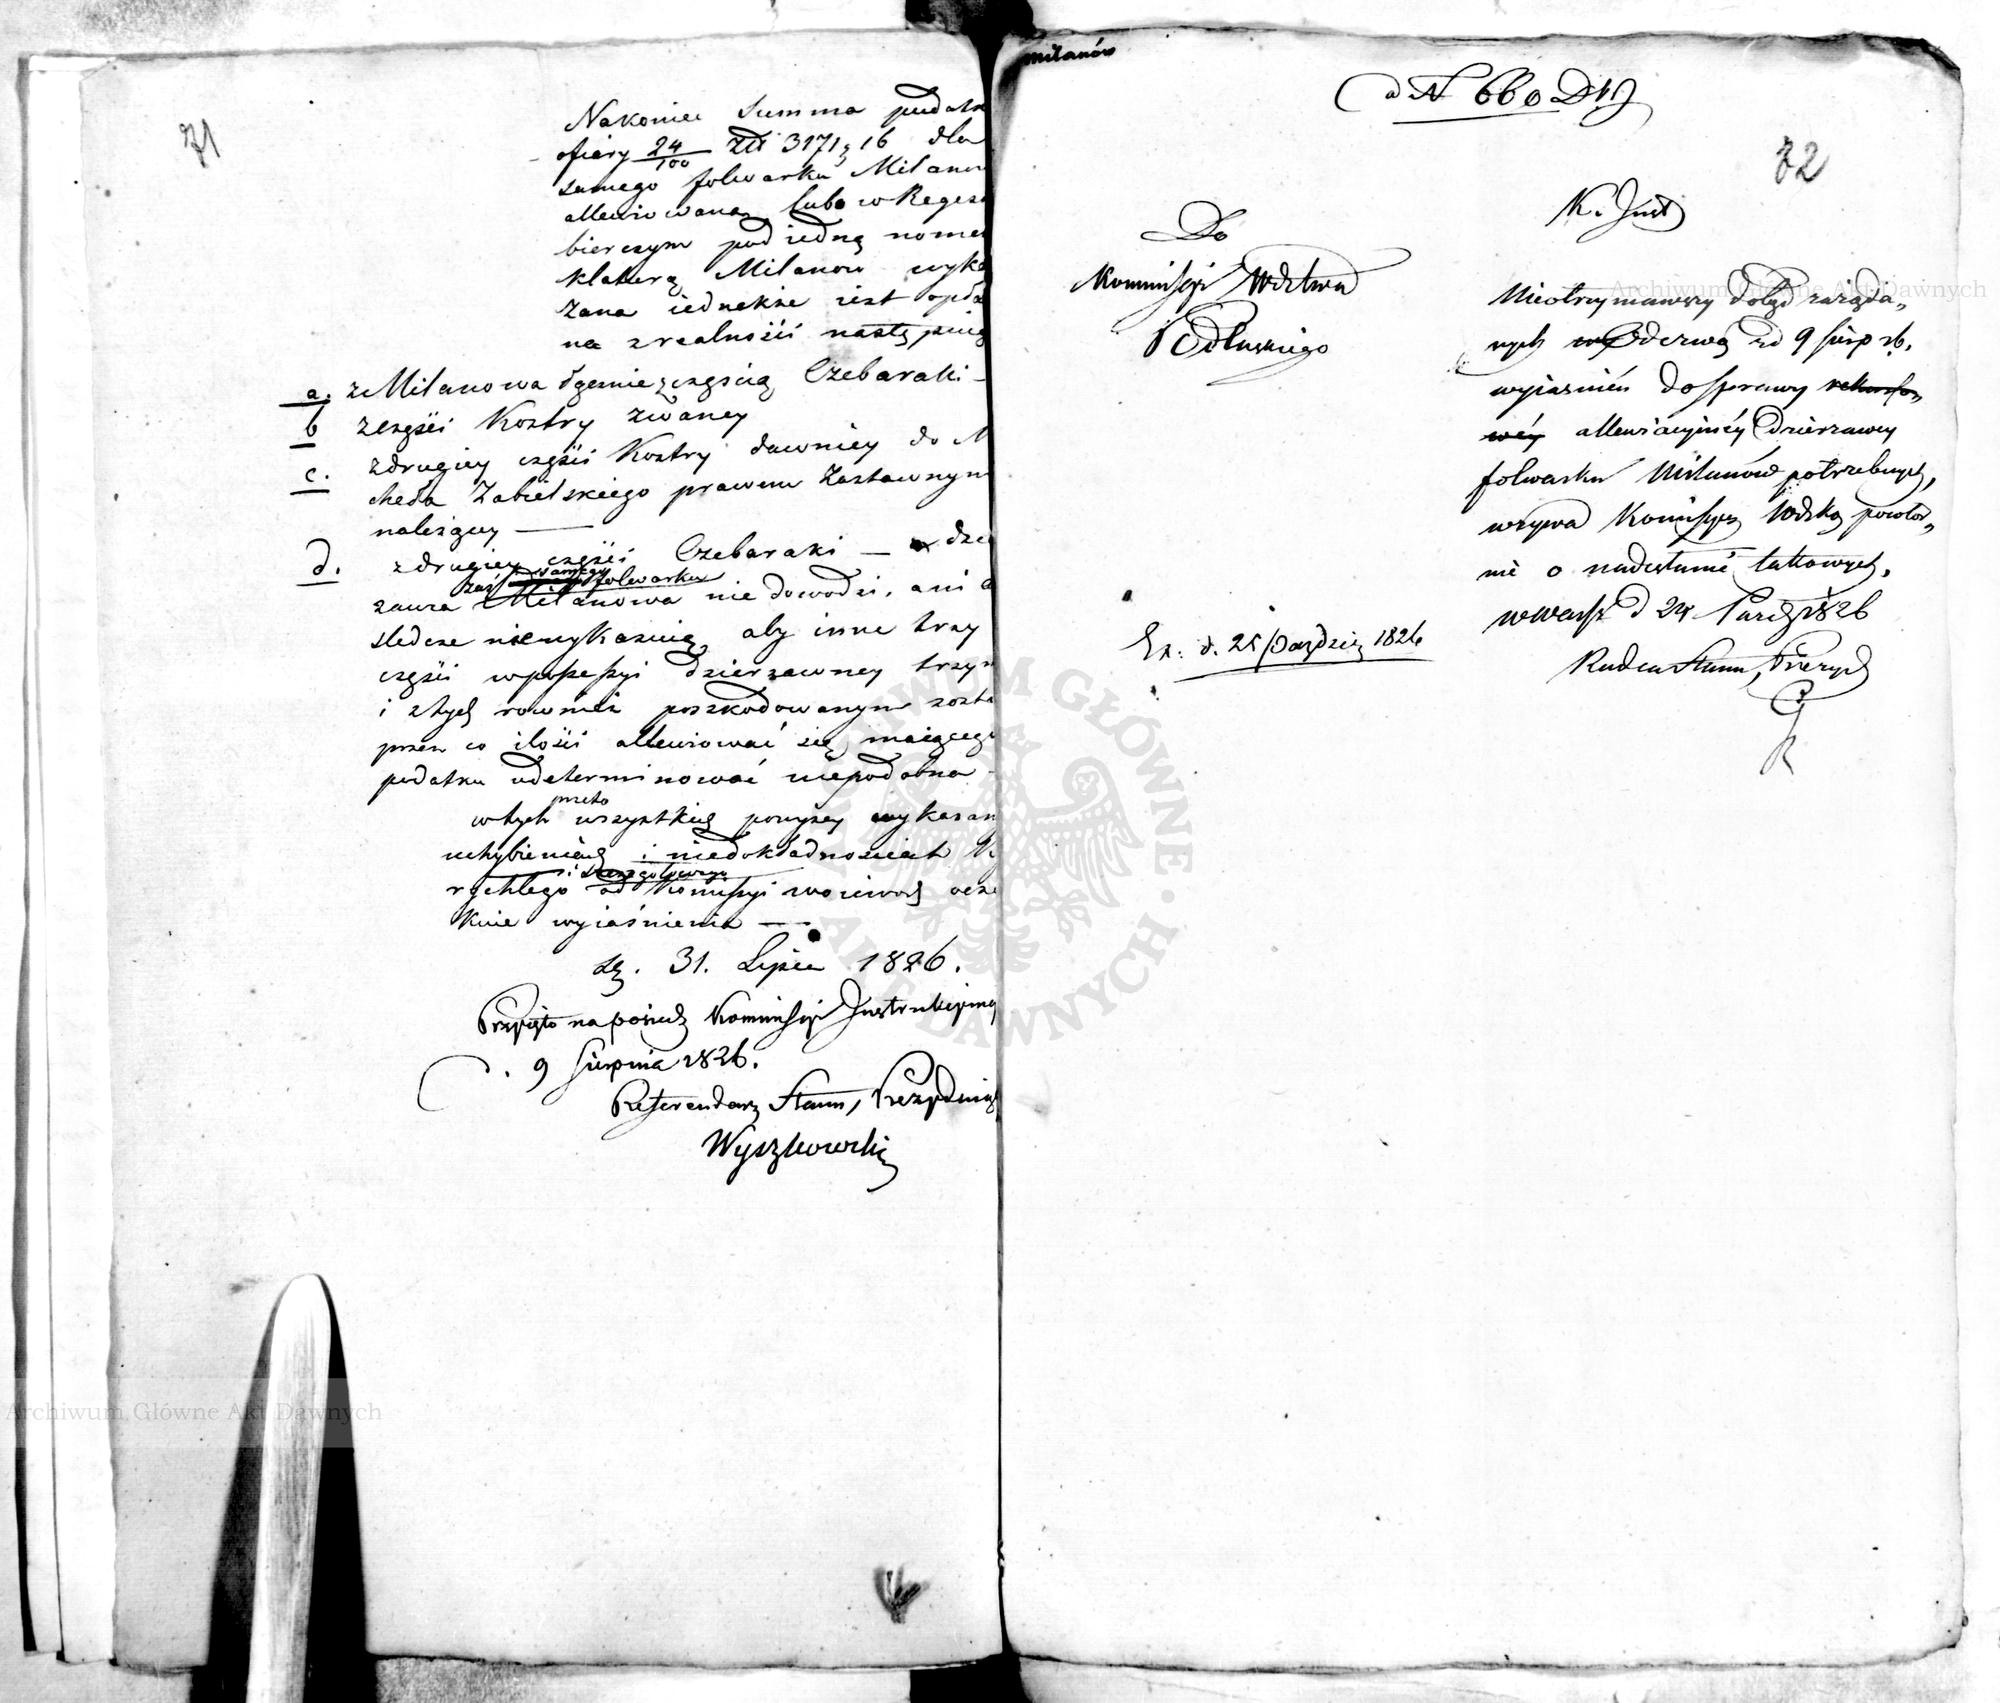 71
Nakoniec Summa podatk
ofiary 24/100 Złł 3171 g 16 dla
samego folwarku Milanow
allewiowana, lubo w Regest
bierczym pod iedną nomen
klaturą Milanow wyka
zana iednakże iest opła
na z realności następuią
a. z Milanowa tgemie z częścią Czebaraki –
b z części Kostry zwaney
c. z drugiey części Kostry dawniey do M
chała Zabielskiego prawem Zastawnym
należący —
d. z drugiey części Czebaraki — dzie
zaś samego folwarku
zawca Milanowa nie dowodzi, ani
śledcze niewykazuią, aby inne trzy
części w possessyi dzierzawney trzym
i z tych rownież poszkodowanym zosta
przez co ilości allewiować się maiącego
podatku udeterminować niepodobna –
przeto
w tych wszystkich powyzey wykazan
uchybieniach i niedokładnościach
i szczegółowego
rychłego od Kommissyi woiewodz ocze
kuie wyiaśnienia —
31. Lipca 1826.
Przyięto na posiedz Kommissyi Instrukcyiney
d. 9 Sierpnia 1826.
Referendarz Stanu, Prezyduiący
Wyszkowski
Milanów
ad N 660 D K J
72
K. Inst
Do
Kommissyi Wdztwa
Podlaskiego
Nieotrzymawszy dotąd zażąda„
nych Odezwą z d 9 Sierp rb.
wyiasnień do sprawy rekurso„
wéy allewiacyinéy Dzierzawcy
folwarku Milanów potrzebnych,
wzywa Komissyę Wdzką powtór„
nie o nadesłanie takowych.
w Warsz d 24 Paźdz 1826
Radca Stanu, Prezyd
Ex. d. 25 Paździer 1826
Archiwum Główne Akt Dawnych
Archiwum Główne Akt Dawnych
ARCHIWUM GŁÓWNE AKT DAWNYCH